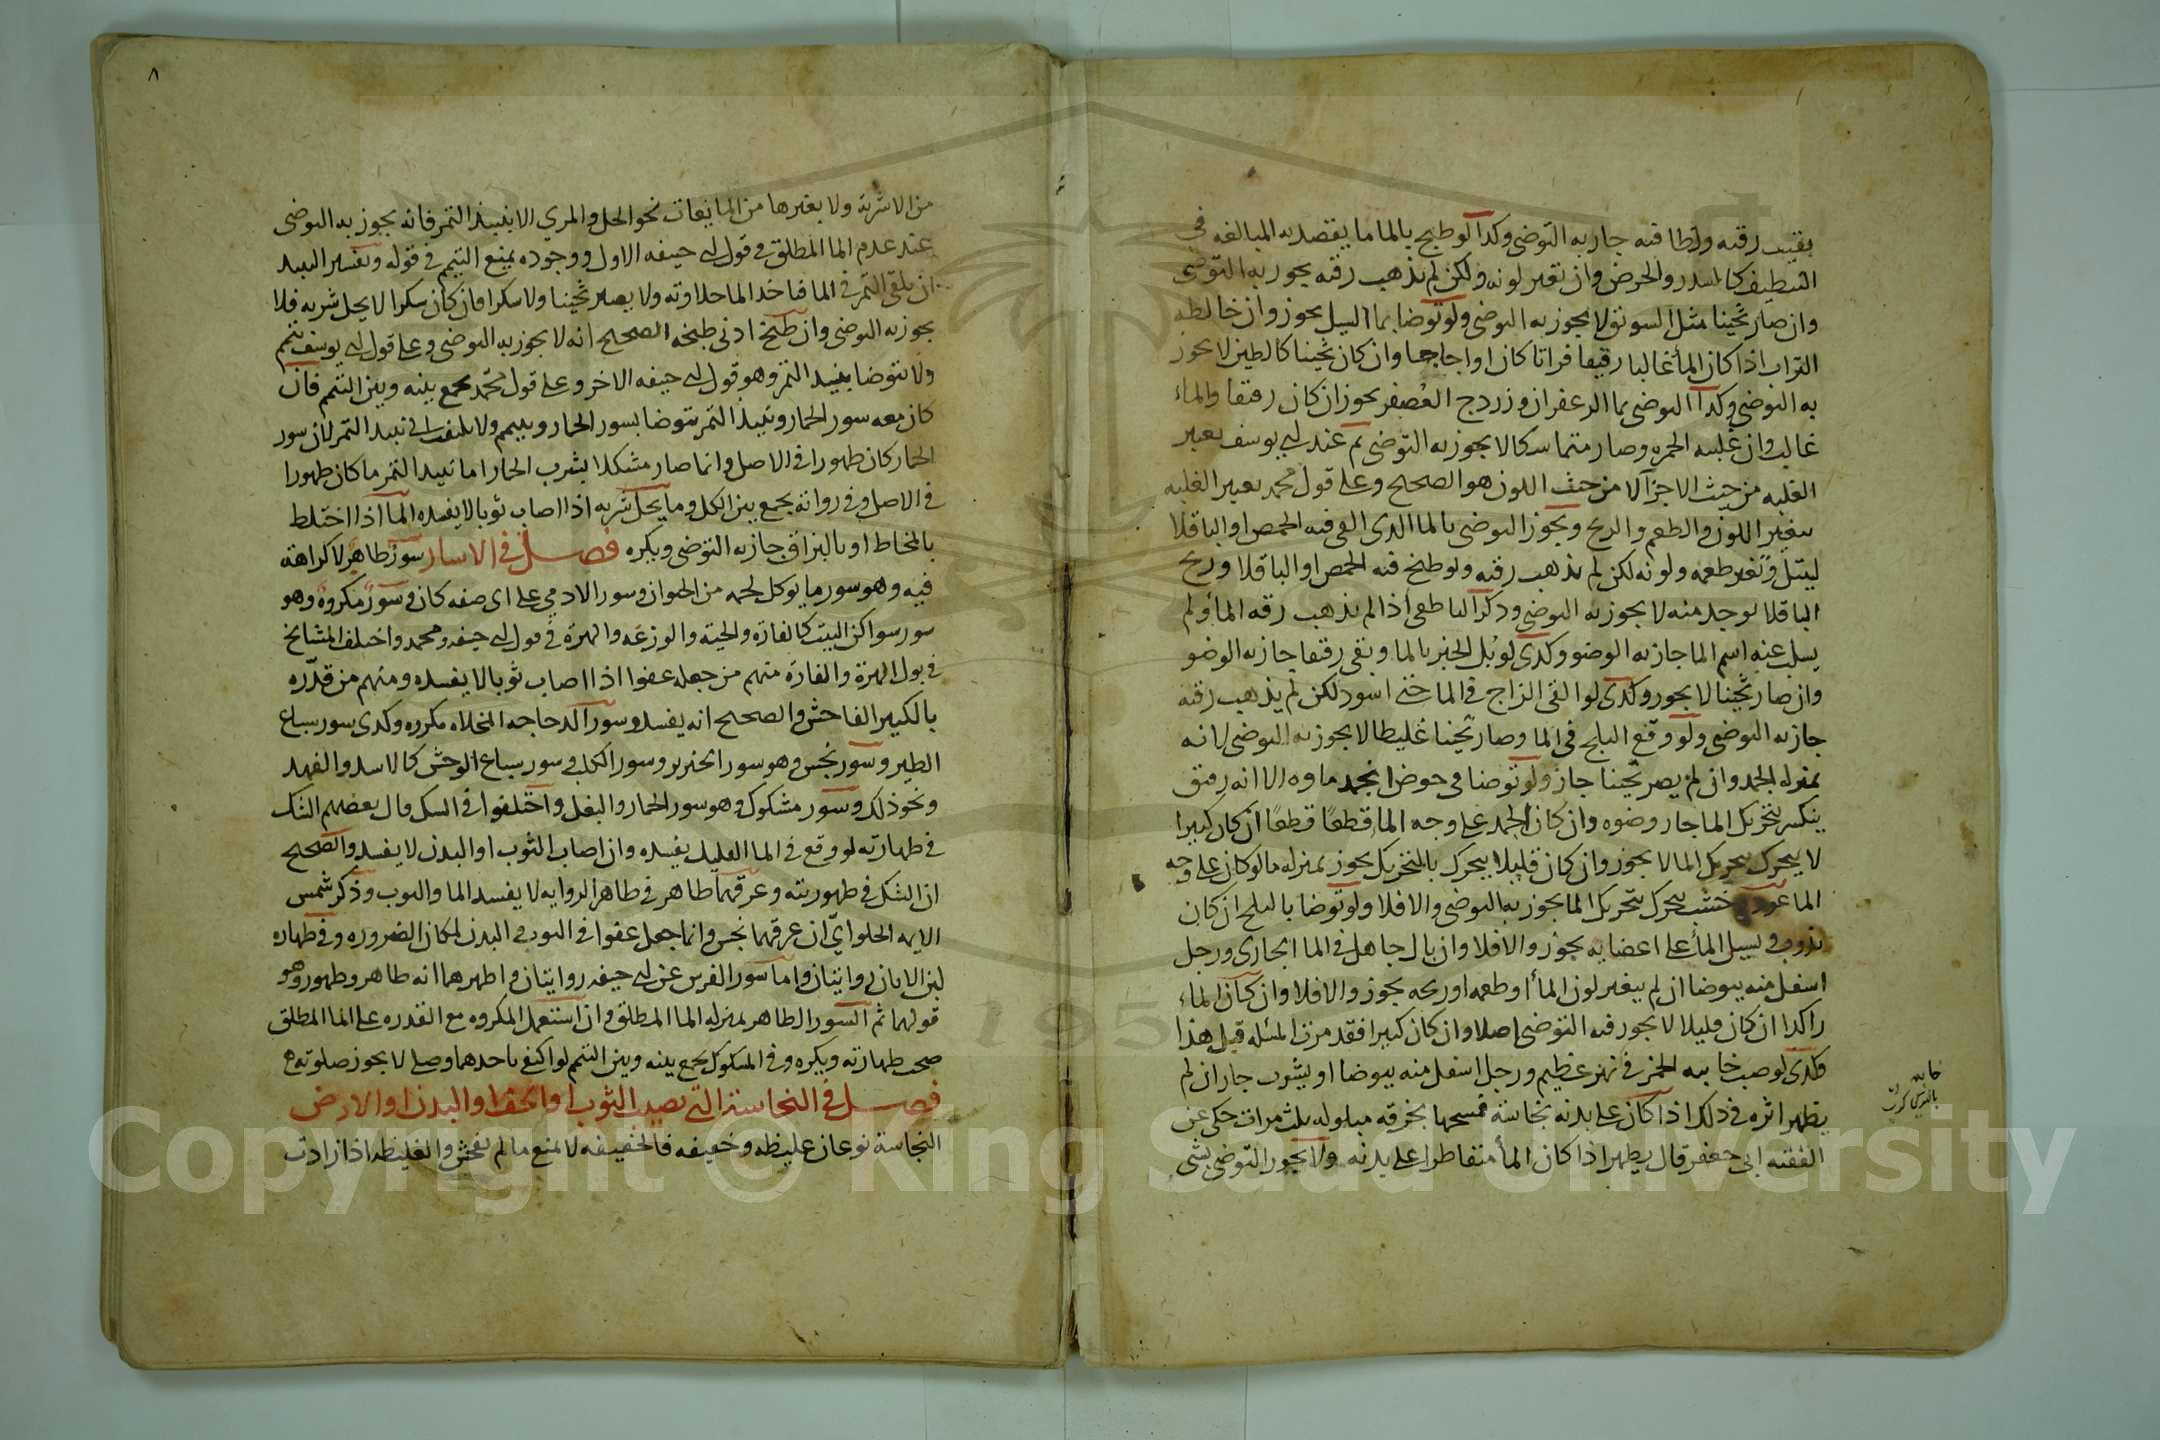 بقيت رقته ولطافته جاز به التوضى وكذا لو طبخ بالما ما يقصد به المبالغه في
التنظيف كالسدر والحرض وان تغير لونه ولكن لم تذهب رقته يجوز به التوضى
وان صار ثخينا مثل السويق لا يجوز به التوضى ولو توضا بما السيل يجوز وان خالطه
التراب اذا كان الماء غالبا رقيقا فراتا كان او اجاجا وان كان ثخينا كالطين لا يجوز
به التوضى وكذا التوضى بما الزعفران وزردج العصفر يجوز ان كان رقيقا والماء
غالب وان غلبه الحمره وصار متماسكا لا يجوز به التوضى ثم عند ابي يوسف يعتبر
الغلبه من حيث الاجزآ لا من حيث اللون هو الصحيح وعلى قول محمد يعتبر الغلبه
بتغير اللون والطعم والريح ويجوز التوضى بالما الذى القي فيه الحمص او الباقلا
ليبتل وتغير طعمه ولونه لكن لم تذهب رقته ولو طبخ فيه الحمص او الباقلا وريح
الباقلا توجد منه لا يجوز به التوضى وذكر الناطفي اذا لم تذهب رقه الماء ولم
يسلب عنه اسم الما جاز به الوضو وكذى لو بل الخبز بالما وبقى رقيقا جاز به الوضو
وان صار ثخينا لا يجوز وكذى لو القى الزاج في الما حتى اسود لكن لم يذهب رقته
جاز به التوضى ولو وقع الثلج في الما وصار ثخينا غليظا لا يجوز به التوضى لانه
بمنزله الجمد وان لم يصر ثخينا جاز ولو توضا في حوض انجمد ماوه الا انه رقيق
ينكسر بتحريك الما جاز وضوه وان كان الجمد على وجه الما قطعًا قطعًا ان كان كبيرا
لا يتحرك بتحريك الما لا يجوز وان كان قليلا يتحرك بالتحريك يجوز بمنزله ما لو كان على وجه
الما عود خشب يتحرك بتحريك الما يجوز به التوضى والا فلا ولو توضا بالثلج ان كان
يذوب ويسيل الماء على اعضايه يجوز والا فلا وان بال جاهل في الما الجارى ورجل
اسفل منه يتوضا ان لم يتغير لون الماء او طعمه او ريحه يجوز والا فلا وان كان الماء
راكدا ان كان قليلا لا يجوز فيه التوضى اصلا وان كان كبيرا فقد مرت المسئله قبل هذا
وكذى لو صب خابيه الخمر في نهر عظيم ورجل اسفل منه يتوضا او يشرب جاز ان لم
يظهر اثره في ذلك اذا كان على بدنه نجاسة فمسحها بخرقه مبلوله ثلث مرات حكى عن
الفقيه ابى جعفر قال يطهر اذا كان الماء متقاطرا على بدنه ولا يجوز التوضى بشى
خابيه
٨
من الاشربة ولا بغيرها من المايعات نحو الخل والمري الا بنبيذ التمر فانه يجوز به التوضى
عند عدم الما المطلق في قول ابي حنيفه الاول ووجوده يمنع التيمم في قوله وتفسير النبيذ
ان يلقى التمر في الما فياخذ الما حلاوته ولا يصير ثخينا ولا سكرا فان كان سكرا لا يحل شربه فلا
يجوز به التوضى وان طبخ ادنى طبخه الصحيح انه لا يجوز به التوضى وعلى قول ابي يوسف يتيمم
ولا يتوضا بنبيذ التمر وهو قول ابي حنيفه الاخر وعلى قول محمد يجمع بينه وبين التيمم فان
كان معه سور الحمار ونبيذ التمر يتوضا بسور الحمار ويتيمم ولا يلتفت الى نبيذ التمر لان سور
الحمار كان طهورا في الاصل وانما صار مشكلا بشرب الحمار اما نبيذ التمر ما كان طهورا
في الاصل وفي روايه يجمع بين الكل وما يحل شربه اذا اصاب ثوبا لا يفسده الما اذا اختلط
بالمخاط او بالبزاق جاز به التوضى ويكره فصل في الاسار سور طاهر لا كراهة
فيه وهو سور ما يوكل لحمه من الحيوان وسور الادمي على اى صفه كان وسور مكروه وهو
سور سواكن البيت كالفارة والحية والوزغه والهرة في قول ابي حنيفه ومحمد واختلف المشايخ
في بول الهرة والفارة منهم من جعله عفوا اذا اصاب ثوبا لا يفسده ومنهم من قدّره
بالكبير الفاحش والصحيح انه يفسد وسور الدجاجه المخلاه مكروه وكذى سور سباع
الطير وسور نجس وهو سور الخنزير وسور الكلب وسور سباع الوحش كالاسد والفهد
ونحو ذلك وسور مشكوك وهو سور الحمار والبغل واختلفوا في الشك قال بعضهم الشك
في طهارته لو وقع في الما القليل يفسده وان اصاب الثوب او البدن لا يفسد والصحيح
ان الشك في طهوريته وعرقهما طاهر في ظاهر الروايه لا يفسد الما والثوب وذكر شمس
الايمه الحلواي ان عرقهما نجس وانما جعل عفوا في الثوب والبدن لمكان الضروره وفي طهاره
لبن الاتان روايتان واما سور الفرس عن ابي حنيفه روايتان واظهرهما انه طاهر وطهور وهو
قولهما ثم السور الطاهر بمنزله الما المطلق وان استعمل المكروه مع القدره على الما المطلق
صحت طهارته ويكره وفي المشكوك يجمع بينه وبين التيمم لو اكتفى باحدهما وصلى لا يجوز صلوته
فصل في النجاسة التي تصيب الثوب او الخف او البدن او الارض
النجاسة نوعان غليظه وخفيفه فالخفيفه لا تمنع ما لم يفحش والغليظه اذا زادت
Copyright © King Saud University